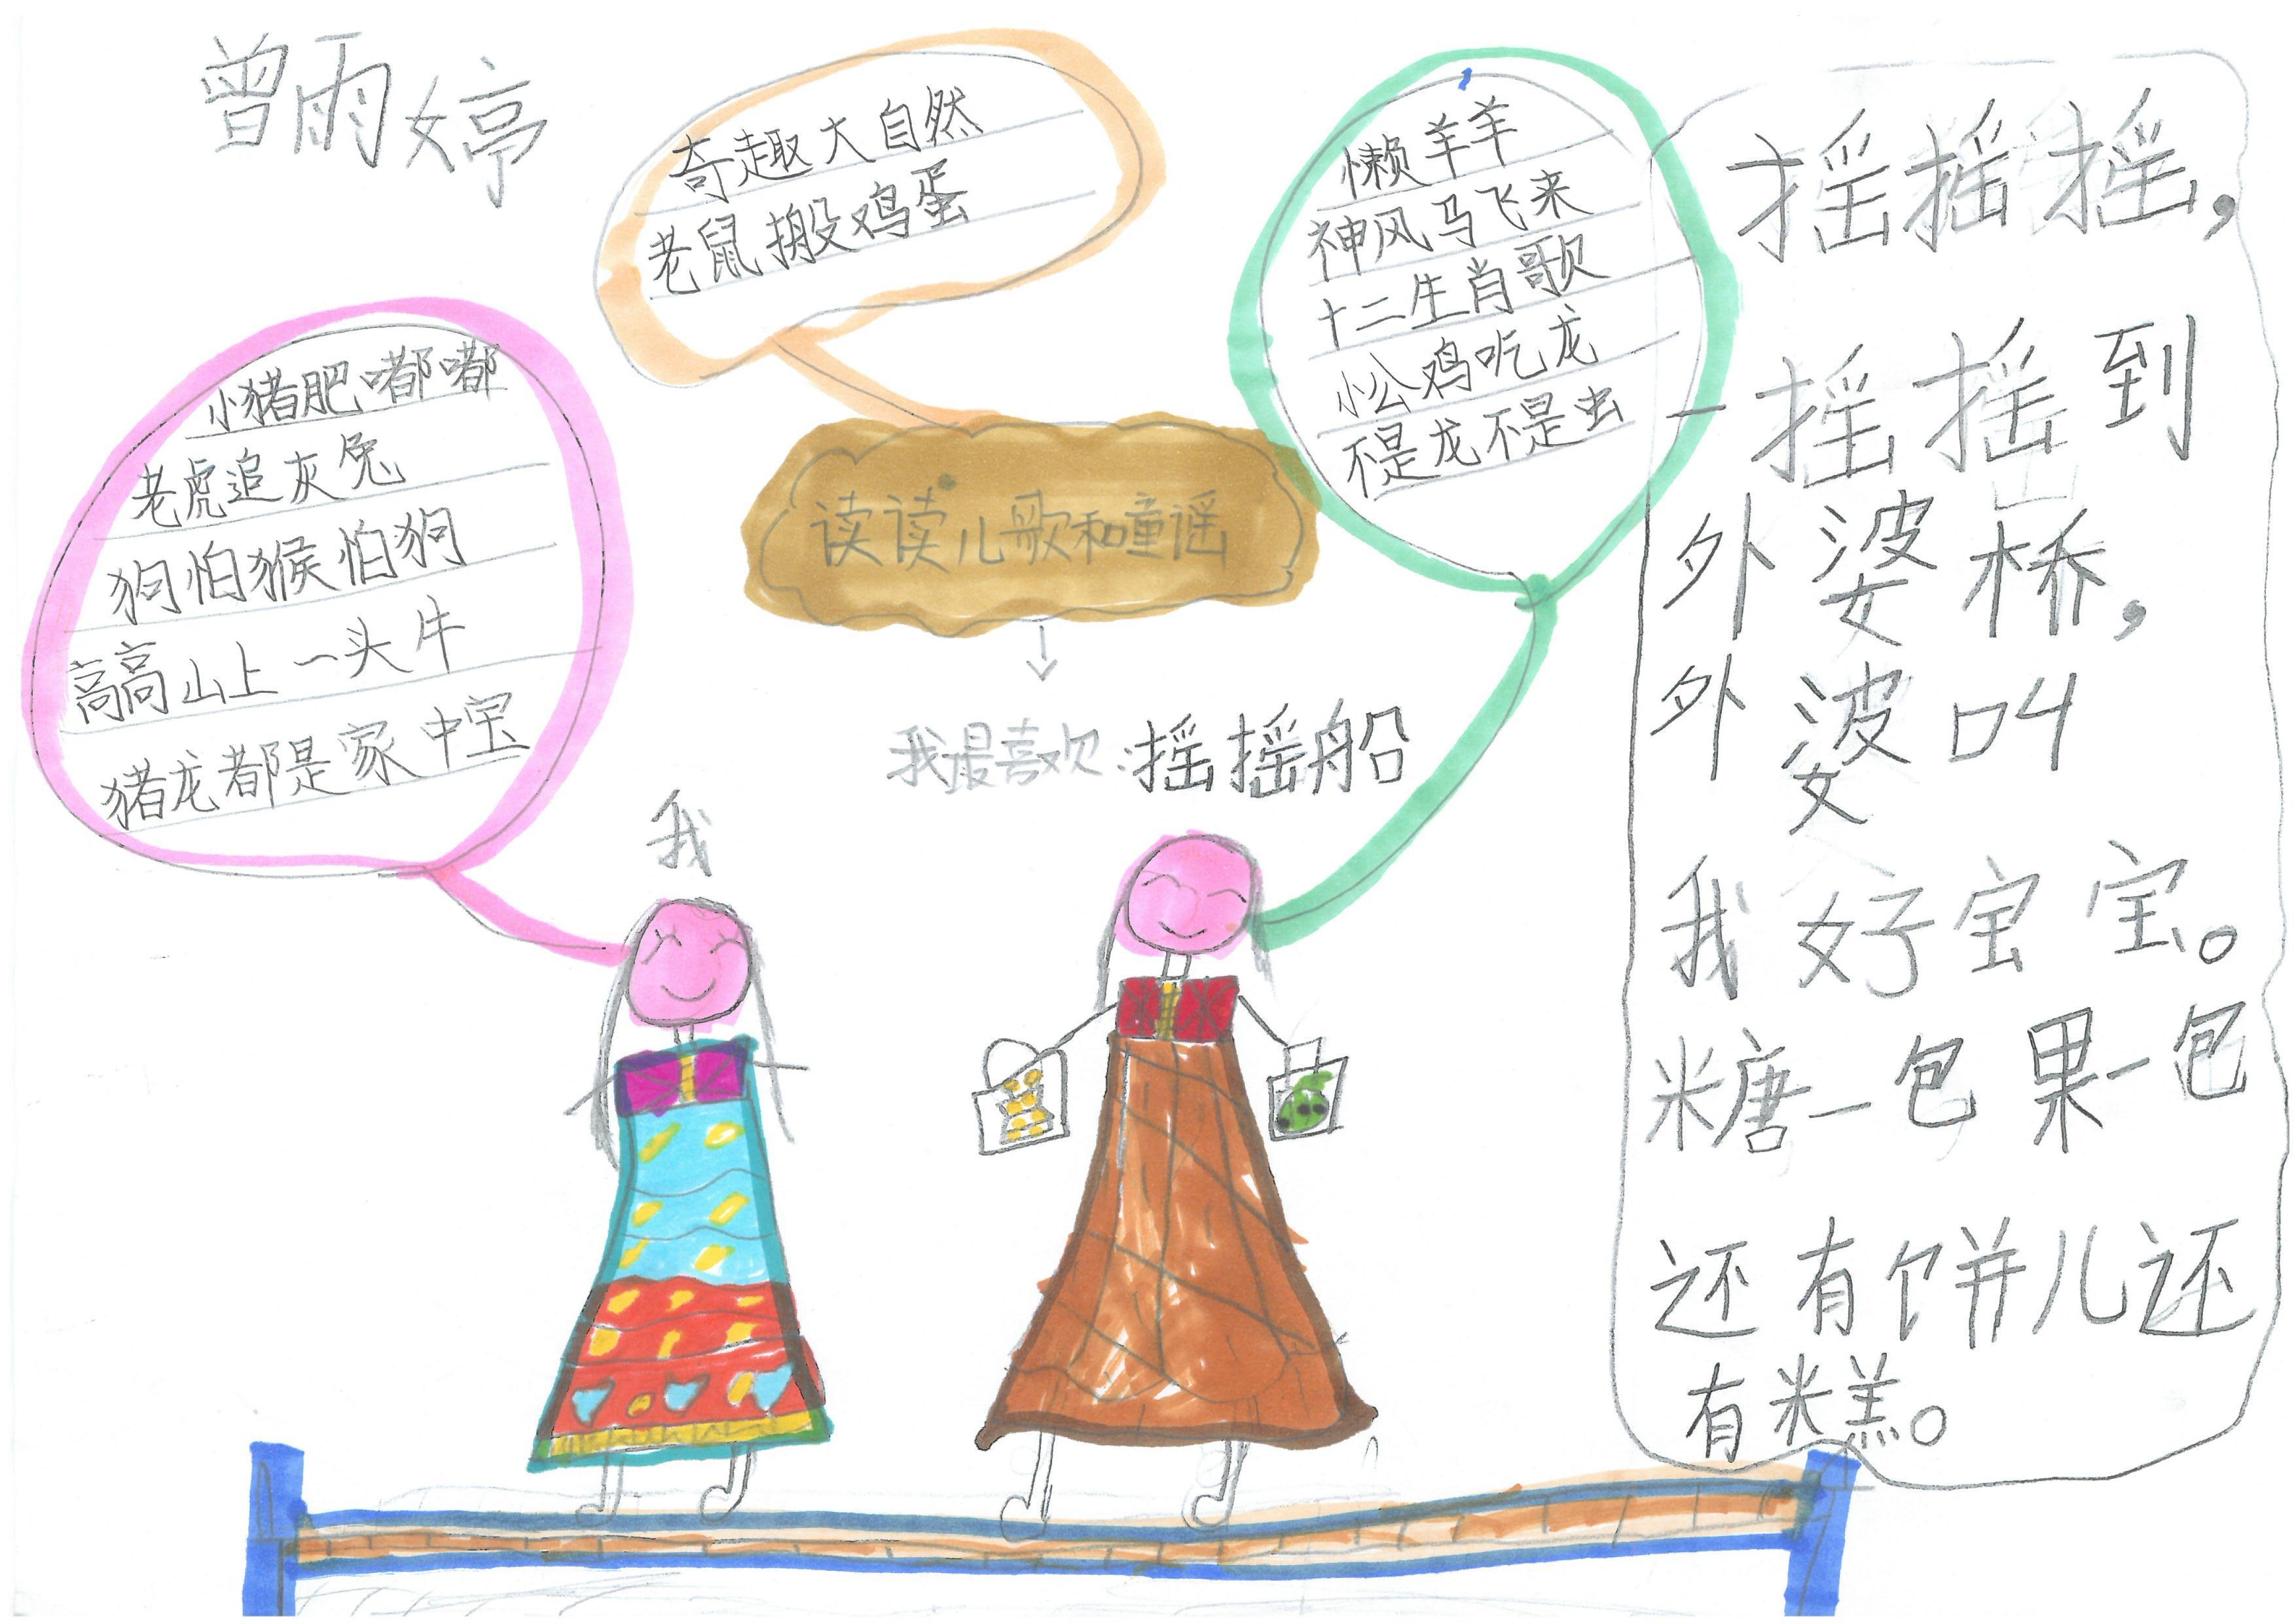 曾雨婷
奇趣大自然
老鼠搬鸡蛋
懒羊羊
神风马飞来
十二生肖歌
小公鸡吃龙
不是龙不是虫
小猪肥嘟嘟
老虎追灰兔
狗怕猴怕狗
高高山上一头牛
猪龙都是家中宝
读读儿歌和童谣
我最喜欢:摇摇船
我
摇摇摇,
一摇摇到
外婆桥,
外婆叫
我好宝宝。
糖一包果一包
还有饼儿还
有米糕。